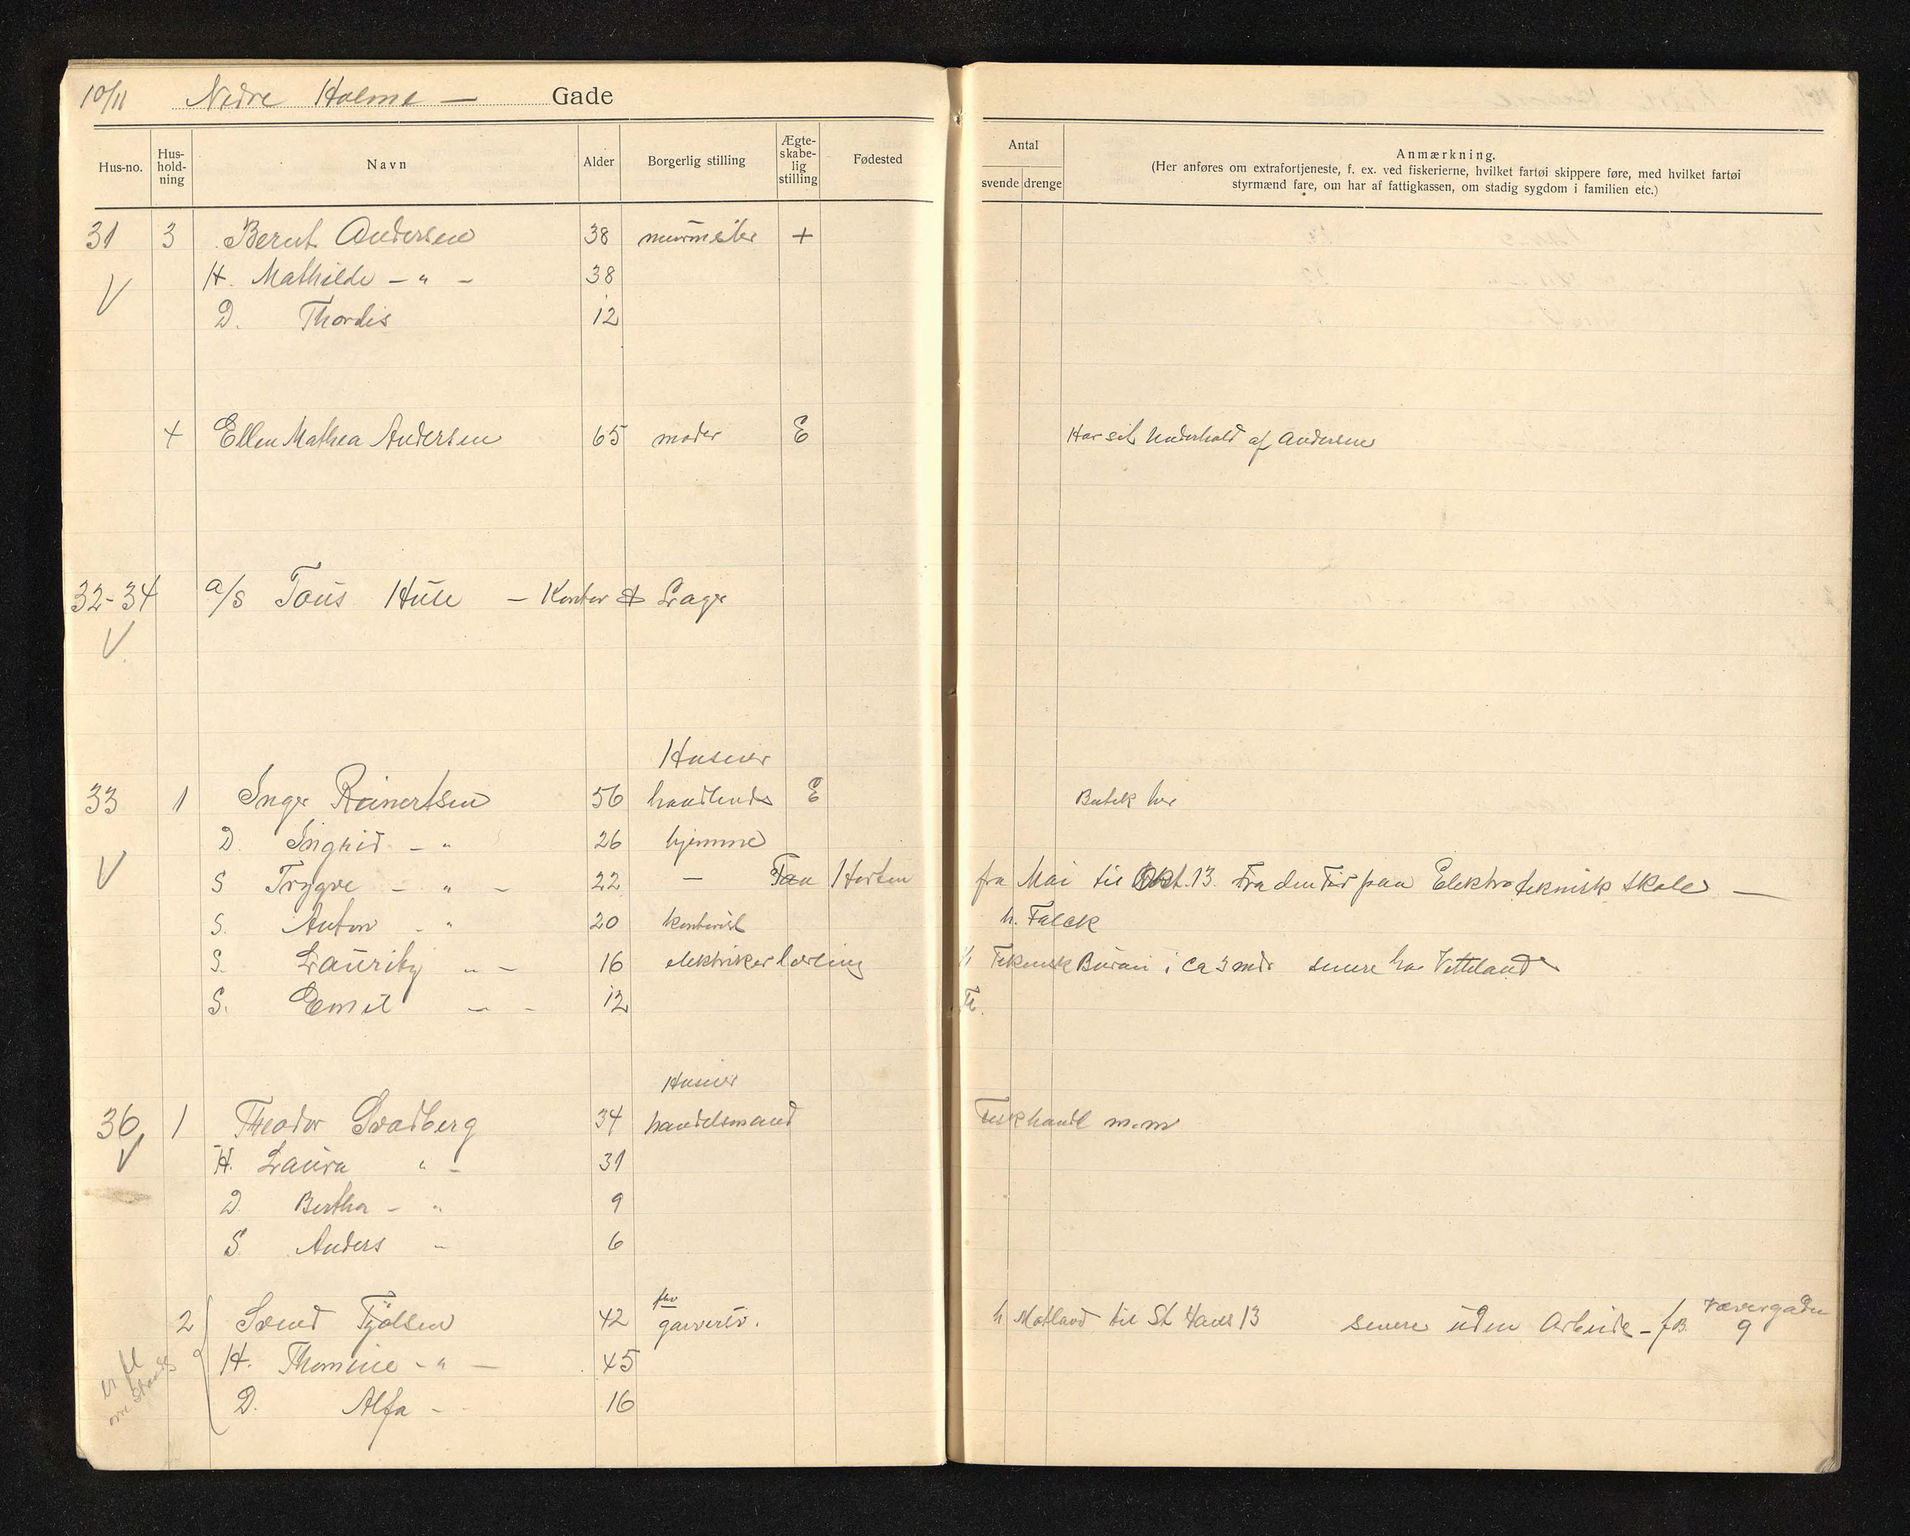 10/11 Nedre Holme — Gade
Hus-no. Hus-hold-ning Navn Alder Borgerlig stilling Ægte-skabe-lig stilling Fødested Antal svende drenge Anmærkning.
(Her anføres om extrafortjeneste, f. ex. ved fiskerierne, hvilket fartøi skippere føre, med hvilket fartøi
styrmænd fare, om har af fattigkassen, om stadig sygdom i familien etc.)
31 3 Bernt Andersen 38 murmester +
H. Mathilde — " — 38
V
D. Thordis 12
4 Ellen Mathea Andersen 65 moder E Har sit Underhold af Andersen
32-34 a/s Tous Huse — Kontor & Lager
V
Huseier
33 1 Inger Reinertsen 56 handlende E Butik her
D. Ingrid — " 26 hjemme
V S Trygve — " — 22 — Fra Horten fra Mai til Okt. 13. Fra den Tid paa Elektroteknisk skole —
S. Anton — " 20 kontorist h. Falck
S. Lauritz " — 16 elektrikerlærling Teknisk Büraü i ca 3 mdr senere hos Vetteland
S. Emil — — 12
Huseier
36 1 Theodor Svadberg 34 handelsmand Fiskhandl m.m
V H. Laura " — 31
D Bertha — " 9
S. Anders " 6
fhv
2 Svend Fjølsen 42 garversv. h Matland til St Hans 13 senere uden Arbeide — f.B. Vævergaden 9
H. Thomine — " — 45
D. Alfa — 16